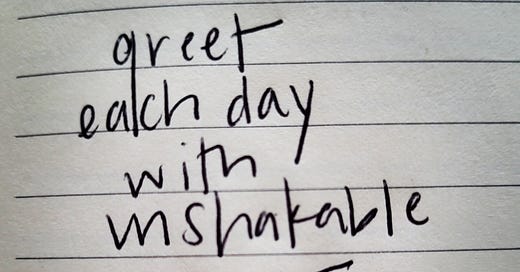 greet
each day
with
unshakable